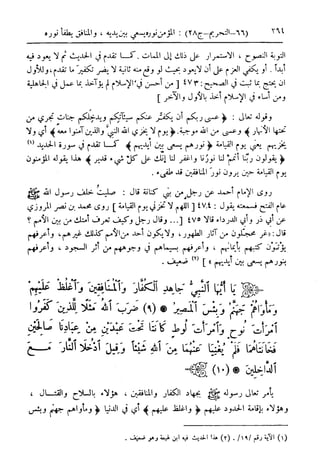 ٢٦٤ (٦٦-التحريم-ج٢٨) : المؤمن نوره يسعى بين يديه ، والمنافق يطفأ نوره
التوبة النصوح ، الاستمرار على ذلك إلى الممات . كما تقدم في الحديث ثم لا يعود فيه
أبداً . أو يكفي العزم على أن لا يعود بحيث لو وقع منه ثانية لا يضر تكفير ما تقدم، وللأول
ان يحتج بما ثبت في الصحيح: ٤٧٣ [ من أحسن في الإسلام لم يؤاخذ بما عمل في الجاهلية
ومن أساء في الإسلام أخذ بالأول والآخر ]
وقوله تعالى : ﴿ عسى ربكم أن يكفر عنكم سيئاتكم ويدخلكم جنات تجري من
تحتها الأنهار ﴾ وعسى من الله موجبة . ﴿ يوم لا يخزي الله النبي والذين آمنوا معه ﴾ أي ولا
يخزيهم يعني يوم القيامة ﴿ نورهم يسعى بين أيديهم ﴾ كما تقدم في سورة الحديد (١)
﴿ يقولون ربنا أتمم لنا نورنا واغفر لنا إنك على كل شيء قدير ﴾ هذا يقوله المؤمنون
يوم القيامة حين يرون نور المنافقين قد طفىء .
روى الإمام أحمد عن رجل من بني كنانة قال : صليت خلف رسول الله ﷺ
عام الفتح فسمعته يقول : ٤٧٤ [ اللهم لا تخزني يوم القيامة ] روى محمد بن نصر المروزي
عن أبي ذر وأبي الدرداء قالا ٤٧٥ [ ... وقال رجل وكيف تعرف أمتك من بين الأمم ؟
قال: «غر محجلون من آثار الطهور، ولا يكون أحد من الأمم كذلك غيرهم، وأعرفهم
يؤتون كتبهم بأيمانهم ، وأعرفهم بسيماهم في وجوههم من أثر السجود ، وأعرفهم
بنورهم يسعى بين أيديهم » ] (٢) ضعيف .
يَا أَيُّهَا النَّبِيُّ جَاهِدِ الْكُفَّارَ وَالْمُنَافِقِينَ وَاغْلُظْ عَلَيْهِمْ
وَمَأْوَاهُمْ جَهَنَّمُ وَبِئْسَ الْمَصِيرُ ﴿٩﴾ ضَرَبَ اللَّهُ مَثَلًا لِلَّذِينَ كَفَرُوا
امْرَأَتَ نُوحٍ وَامْرَأَتَ لُوطٍ كَانَتَا تَحْتَ عَبْدَيْنِ مِنْ عِبَادِنَا صَالِحَيْنِ
فَخَانَتَاهُمَا فَلَمْ يُغْنِيَا عَنْهُمَا مِنَ اللَّهِ شَيْئًا وَقِيلَ ادْخُلَا النَّارَ مَعَ
الدَّاخِلِينَ ﴿١٠﴾
يأمر تعالى رسوله ﷺ بجهاد الكفار والمنافقين ، هؤلاء بالسلاح والقتال ،
وهؤلاء بإقامة الحدود عليهم ﴿ واغلظ عليهم ﴾ أي في الدنيا ﴿ ومأواهم جهنم وبئس
(١) الآية رقم /١٩/ . (٢) هذا الحديث فيه ابن لهيعة وهو ضعيف .